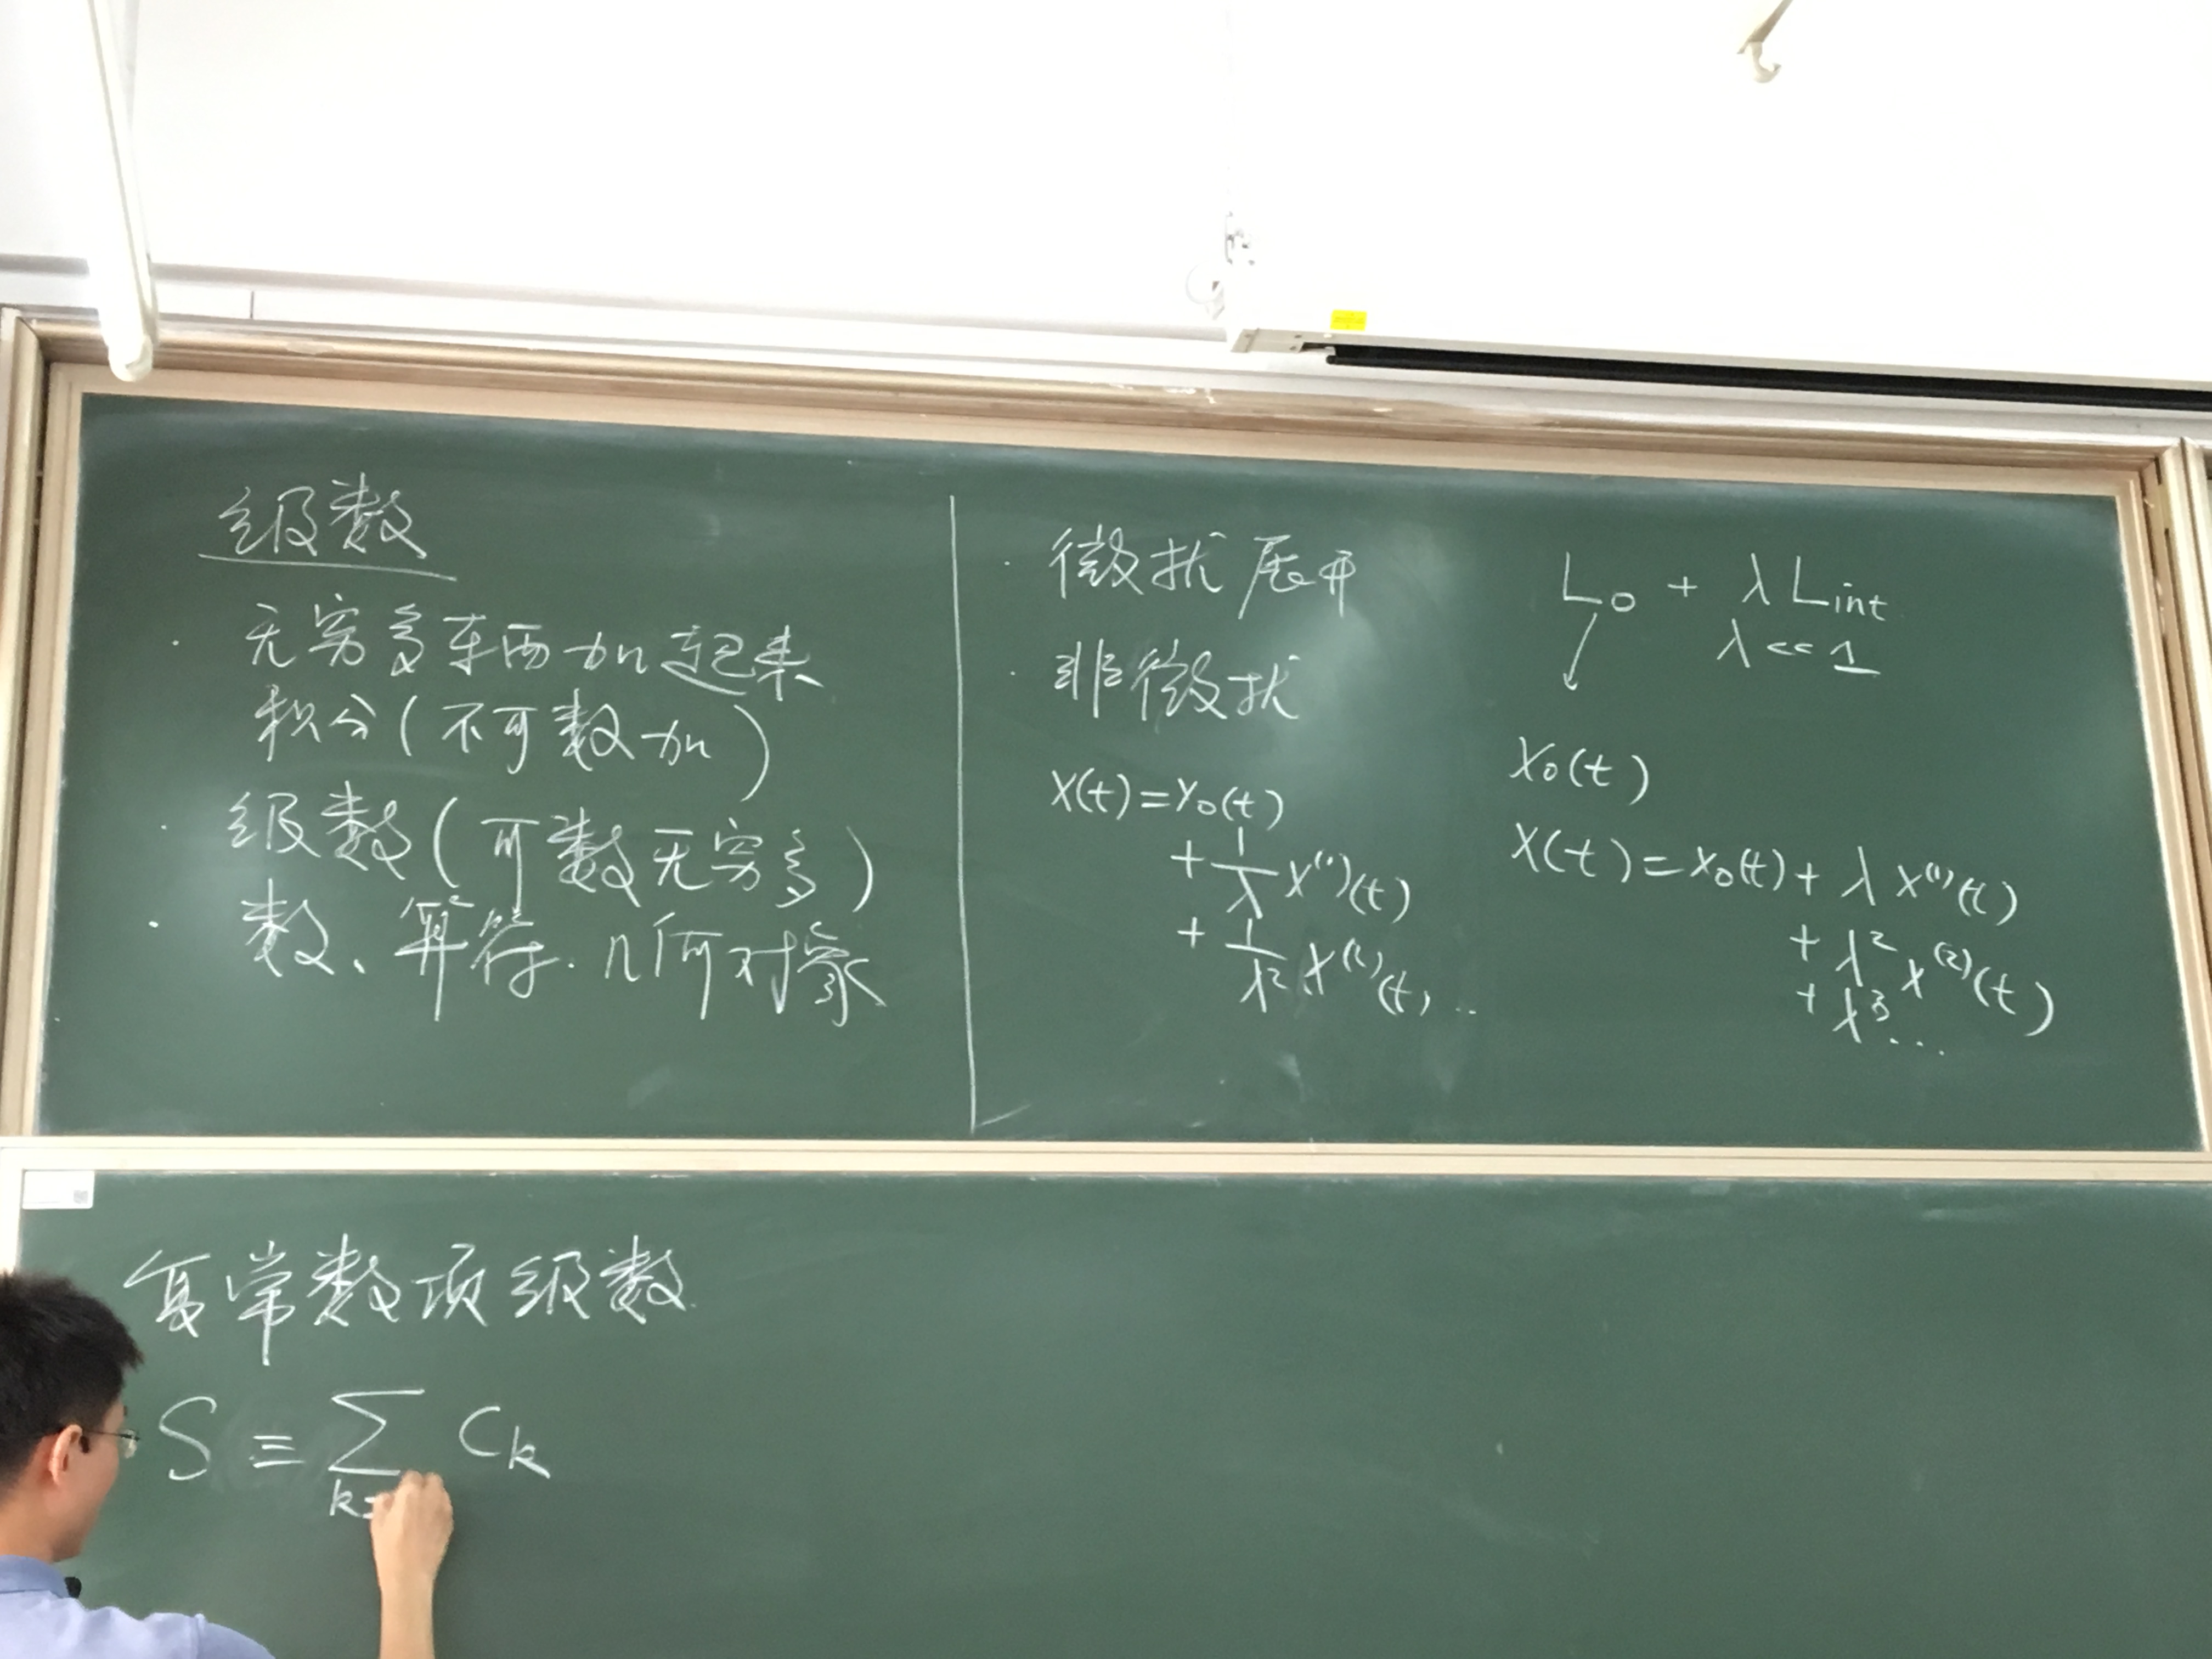 级数
· 无穷多东西加起来
积分(不可数加)
· 级数(可数无穷多)
· 数、算符、几何对象
· 微扰展开
· 非微扰
X(t)=X₀(t)
+ 1/λ X⁽¹⁾(t)
+ 1/λ² X⁽²⁾(t) ...
L₀ + λ Lint
λ << 1
X₀(t)
X(t) = X₀(t) + λ X⁽¹⁾(t)
+ λ² X⁽²⁾(t)
+ λ³ ...
复常数项级数
S ≡ ∑ Cₖ
k=